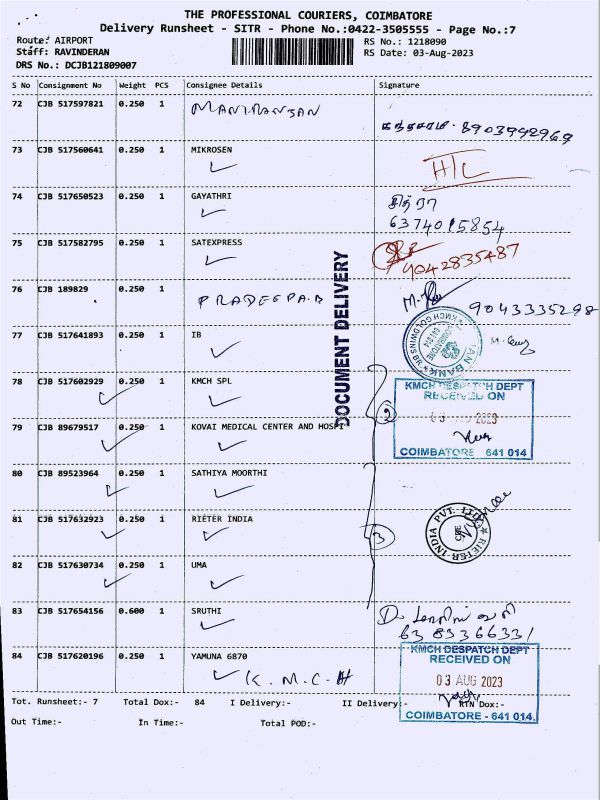 THE PROFESSIONAL COURIERS, COIMBATORE
Delivery Runsheet - SITR - Phone No.:0422-3505555 - Page No.:7
Route: AIRPORT
RS No.: 1218090
Staff: RAVINDERAN
RS Date: 03-Aug-2023
DRS No.: DCJB121809007
S No Consignment No Weight PCS Consignee Details Signature
72 CJB 517597821 0.250 1 MANIRANJAN
கந்தசாமி - 8903942969
73 CJB 517560641 0.250 1 MIKROSEN
H/L
74 CJB 517650523 0.250 1 GAYATHRI
சித்ரா
6374015854
75 CJB 517582795 0.250 1 SATEXPRESS
9042835487
76 CJB 189829 0.250 1 PRADEEPA.B
9043335298
77 CJB 517641893 0.250 1 IB
KMCH GOLDWINS BR.
COIMBATORE
641 014
78 CJB 517602929 0.250 1 KMCH SPL
DOCUMENT DELIVERY
KMCH DESPATCH DEPT
RECEIVED ON
2023
COIMBATORE 641 014
79 CJB 89679517 0.250 1 KOVAI MEDICAL CENTER AND HOSPI
2
80 CJB 89523964 0.250 1 SATHIYA MOORTHI
81 CJB 517632923 0.250 1 RIETER INDIA
3
RIETER INDIA PVT. LTD.
CBE
82 CJB 517630734 0.250 1 UMA
83 CJB 517654156 0.600 1 SRUTHI
6383366331
84 CJB 517620196 0.250 1 YAMUNA 6870
K.M.C.H
KMCH DESPATCH DEPT
RECEIVED ON
03 AUG 2023
COIMBATORE - 641 014.
Tot. Runsheet:- 7 Total Dox:- 84 I Delivery:- II Delivery:- RTN Dox:-
Out Time:- In Time:- Total POD:-